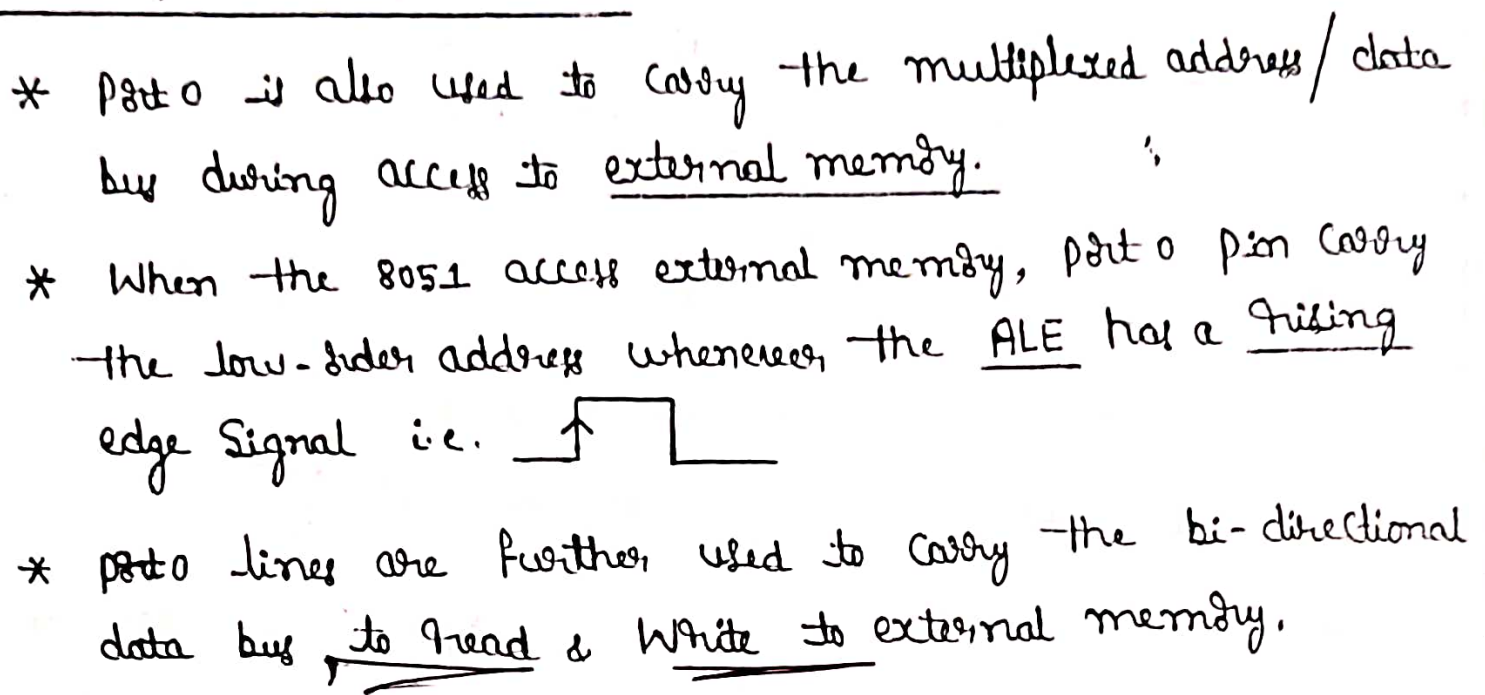 * Port 0 is also used to carry the multiplexed address/ data
bus during access to external memory.
* When the 8051 access external memory, port 0 pin carry
the low-order address whenever the ALE has a rising
edge signal i.e.
* port 0 lines are further used to carry the bi-directional
data bus, to read & write to external memory.